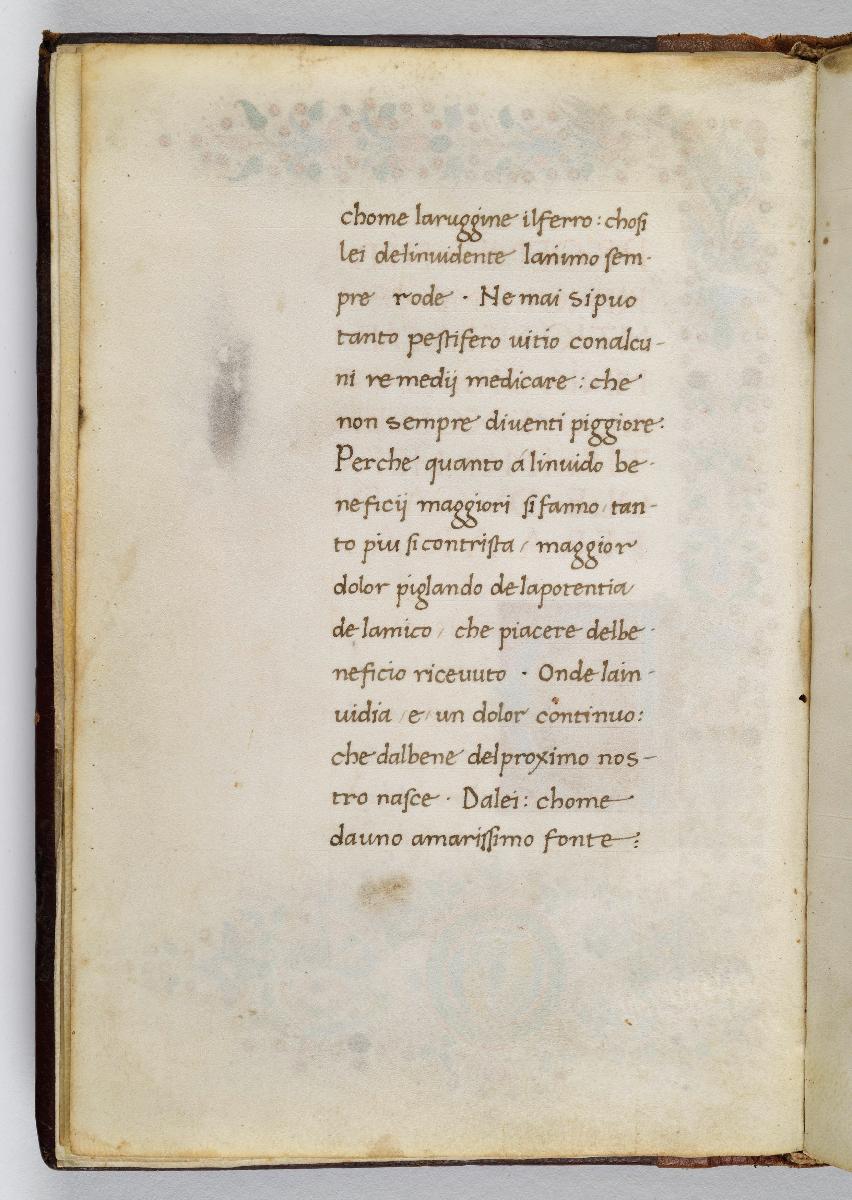 chome laruggine ilferro: chosi
lei delinuidente lanimo sem-
pre rode · Ne mai sipuo
tanto pestifero uitio conalcu-
ni remedij medicare: che
non sempre diuenti piggiore:
Perche quanto alinuido be-
neficij maggiori sifanno / tan-
to piu sicontrista / maggior
dolor piglando delapotentia
delamico / che piacere delbe-
neficio riceuuto · Onde lain-
uidia / e / un dolor continuo:
che dalbene delproximo nos-
tro nasce · Dalei: chome
dauno amarissimo fonte: